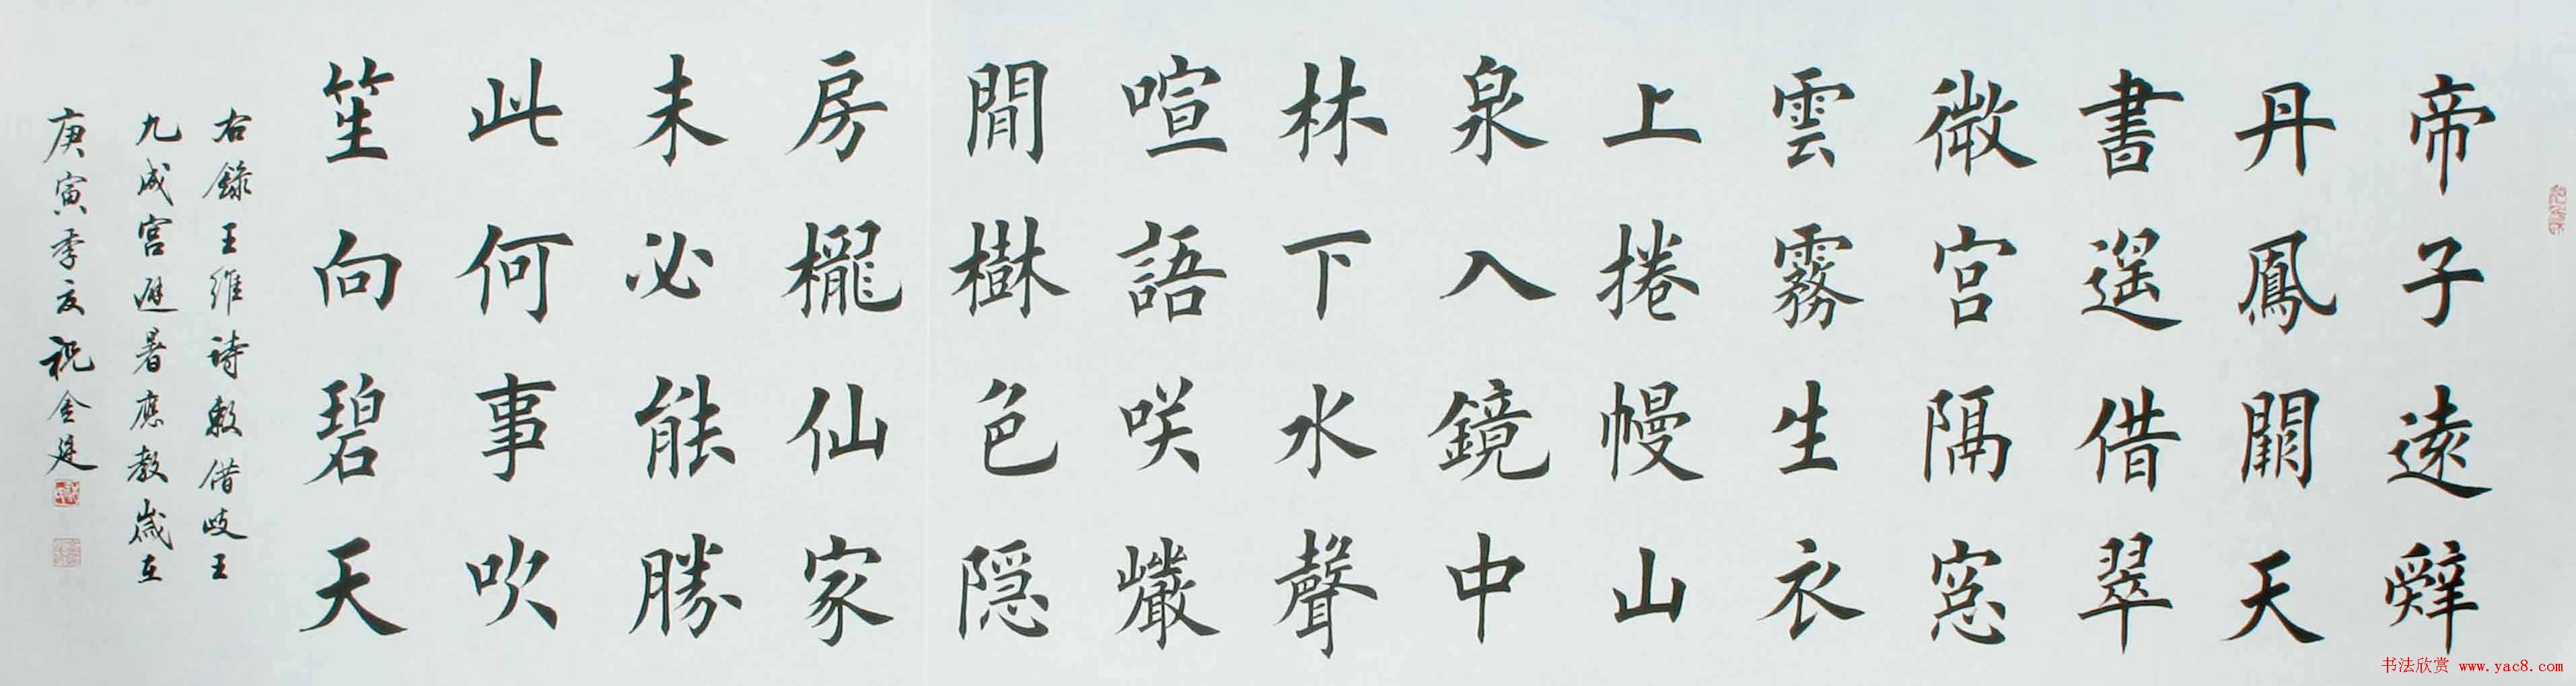 帝子遠辭
丹鳳闕天
書遥借翠
微宫隔窓
雲霧生衣
上捲幔山
泉入鏡中
林下水聲
喧語咲巖
間樹色隠
房櫳仙家
未必能勝
此何事吹
笙向碧天
右錄王維詩敕借岐王
九成宫避暑應教歲在
庚寅季夏祝金
书法欣赏 www.yac8.com